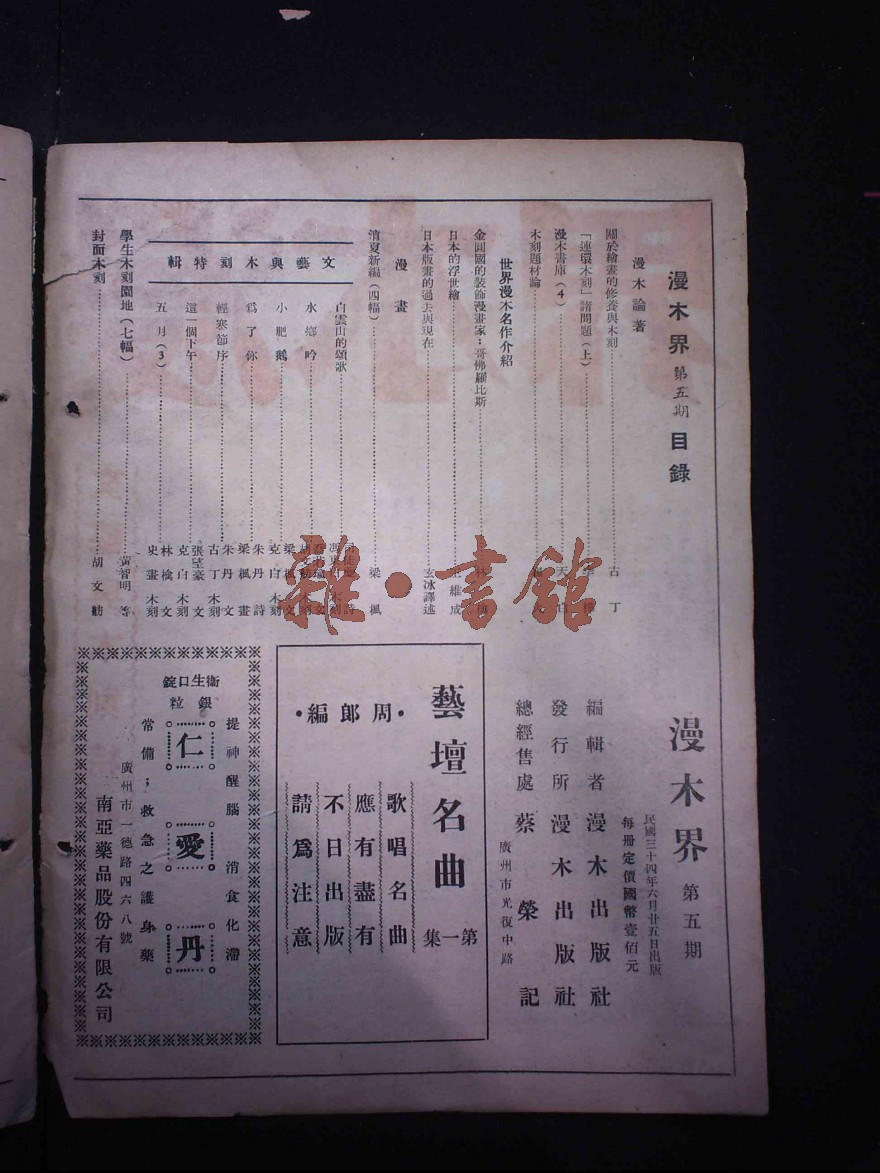 漫木界第五期目錄
漫木論著
關於繪畫的修養與木刻 古丁
「連環木刻」諸問題(上)
漫木書庫(4) 天白
木刻題材論
世界漫木名作介紹
金圓國的裝飾漫畫家:哥佛羅比斯
日本的浮世繪 王維成
日本版畫的過去與現在 玄冰譯述
漫畫
消夏新編(四幅) 梁楓
文藝與木刻特輯
白雲山的頌歌
水鄉吟
小肥鵝 梁楓文 克白木刻
爲了你 朱丹詩 梁楓畫
輕寒節序 朱丹文 古丁木刻
這一個下午 張望豪文 克白木刻
五月(3) 林檎文 史畫木刻
學生木刻園地(七幅) 黃智明等
封面木刻 胡文舫
漫木界 第五期
民國三十四年六月廿五日出版
每册定價國幣壹佰元
編輯者漫木出版社
發行所漫木出版社
總經售處蔡榮記
廣州市光復中路
藝壇名曲 第一集
•周郎編•
歌唱名曲
應有盡有
不日出版
請爲注意
提神醒腦 消食化滯
衛生口錠
銀粒
仁愛丹
常備;救急之護身藥
廣州市一德路四六八號
南亞藥品股份有限公司
雜·書館